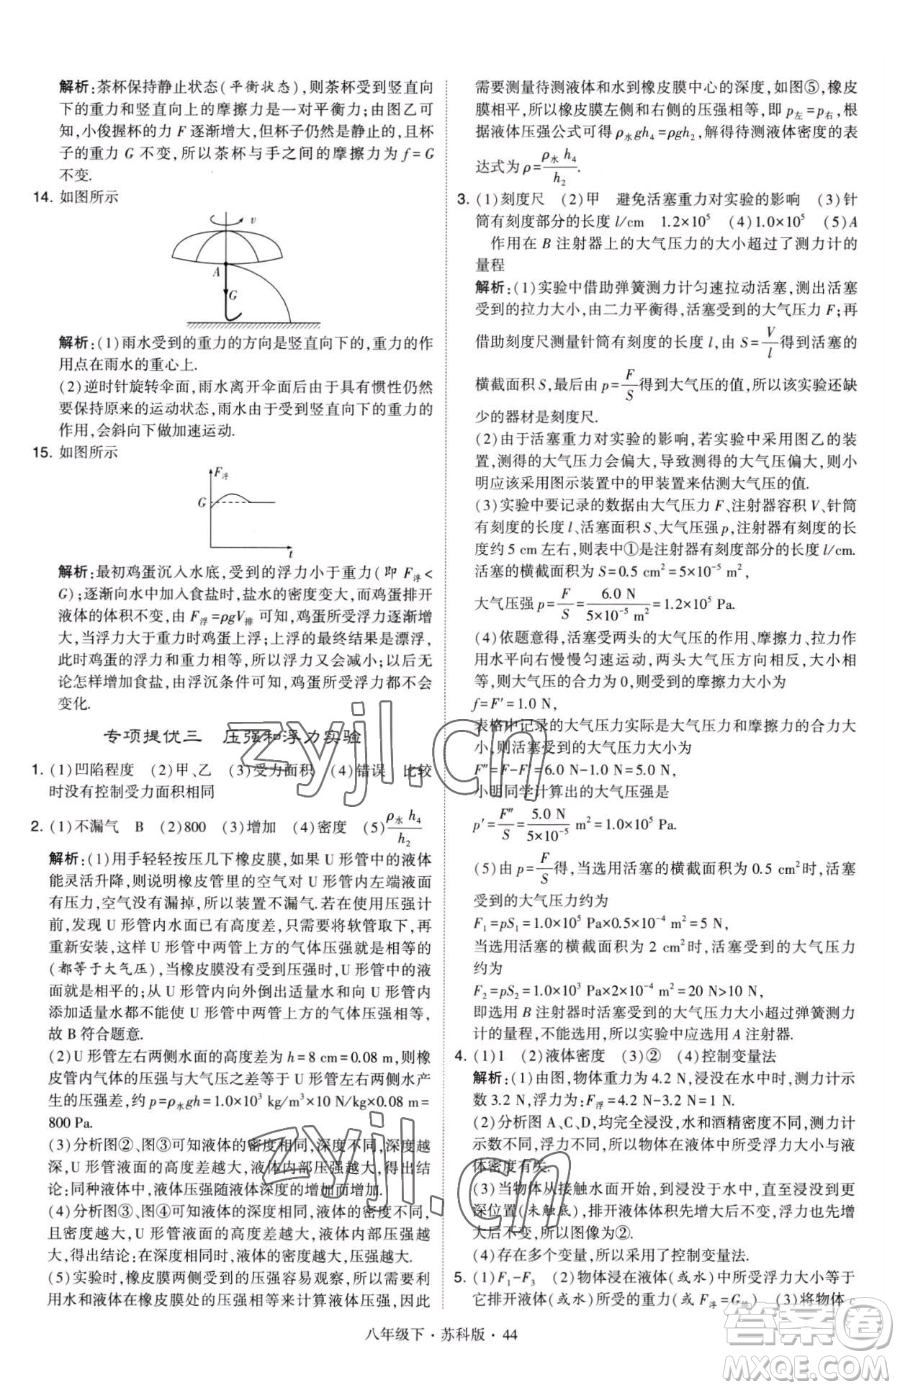 解析:茶杯保持静止状态(平衡状态),则茶杯受到竖直向
下的重力和竖直向上的摩擦力是一对平衡力;由图乙可
知,小俊握杯的力 F 逐渐增大,但杯子仍然是静止的,且杯
子的重力 G 不变,所以茶杯与手之间的摩擦力为 f=G
不变.
14. 如图所示
v
A
G
解析:(1)雨水受到的重力的方向是竖直向下的,重力的作
用点在雨水的重心上.
(2)逆时针旋转伞面,雨水离开伞面后由于惯性仍然
要保持原来的运动状态,雨水由于受到竖直向下的重力的
作用,会斜向下做加速运动.
15. 如图所示
F浮
G
t
解析:最初鸡蛋沉入水底,受到的浮力小于重力(即 F浮<
G);逐渐向水中加入食盐时,盐水的密度变大,鸡蛋排开
液体的体积不变,由 F浮=ρgV排 可知,鸡蛋所受浮力逐渐增
大,当浮力大于重力时鸡蛋上浮;上浮的最终结果是漂浮,
此时鸡蛋所受浮力与重力相等,所以浮力会变小;以后无
论怎样增加食盐,由浮沉条件可知,鸡蛋所受浮力不会
变化.
专项提优三 压强和浮力实验
1. (1)凹陷程度 (2)甲、乙 (3)受力面积 (4)错误 比较
时没有控制受力面积相同
2. (1)不漏气 B (2)800 (3)增加 (4)密度 (5)ρ水h4/h2
解析:(1)用手轻轻按压几下橡皮膜,如果 U 形管中的液体
能灵活升降,则说明橡皮管里的空气对 U 形管内左端液面
有压力,空气没有漏掉,所以装置不漏气.在使用压强计
前,发现 U 形管内水面已有高度差,只需要将软管取下,再
重新安装,这样 U 形管中两管上方的气体压强就是相等的
(都等于大气压),当橡皮膜没有受到压强时,U 形管中的液
面就是相平的;从 U 形管内向外倒出适量水或向 U 形管内
添加适量水都不能使 U 形管两侧液面的高度差为零,
故 B 符合题意.
(2)U 形管左右两侧水面的高度差为 h=8 cm=0.08 m,则橡
皮管内气体的压强与大气压之差,即 U 形管两侧水产
生的压强差,约 p=ρ水gh=1.0×10³ kg/m³×10 N/kg×0.08 m=
800 Pa.
(3)分析图②、图③可知液体的密度相同,深度不同,深度越
深,U 形管液面的高度差越大,液体内部压强越大,可得结
论:同种液体中,液体压强随液体深度的增加而增大.
(4)分析图③、图④可知液体的深度相同,液体的密度不同,且
盐水的密度大于水的密度,液体的密度越大,U 形管液面的
高度差越大,即液体的密度越大,压强越大.
(5)实验时,橡皮膜两侧的压强容易观察,所以需要利
用水和液体在橡皮膜处的压强相等来计算液体压强,因此
需要测量待测液体和水到橡皮膜中心的深度,如图⑤,橡皮
膜相平,所以橡皮膜左侧和右侧的压强相等,即 p左=p右,根
据液体压强公式可得 ρ水gh4=ρgh2,解得待测液体密度的表
达式为 ρ=ρ水h4/h2.
3. (1)刻度尺 (2)甲 避免活塞重力对实验的影响 (3)针
筒有刻度部分的长度 l/cm 1.2×10⁵ (4)1.0×10⁵ (5)A
作用在 B 注射器上的大气压力的大小超过了测力计的
量程
解析:(1)实验中借助弹簧测力计匀速拉动活塞,测出活塞
受到的拉力大小,由二力平衡得,活塞受到的大气压力 F;再
借助刻度尺测量针筒有刻度部分的长度 l,由 S=V/l得到活塞的
横截面积 S,最后由 p=F/S得到大气压的值,所以该实验还缺
少的器材是刻度尺.
(2)由于活塞重力对实验的影响,若实验中使用图乙的装
置,测得的大气压力会偏大,导致测得的大气压强偏大,小
明应该采用图示装置中的甲装置来估测大气压的值.
(3)实验中要记录的数据由大气压力 F、注射器容积 V、针筒
有刻度的长度 l、活塞面积 S、大气压强 p,注射器有刻度的长度
约为 5 cm 左右,则表中①是注射器刻度部分的长度 l/cm.
活塞的横截面积为 S=0.5 cm²=5×10⁻⁵ m²,
大气压强 p=F/S=6.0 N/5×10⁻⁵ m²=1.2×10⁵ Pa.
(4)依题意得,活塞受两头的大气压力的作用、摩擦力、拉力作
用水平向右慢慢匀速运动,两头大气压力相互抵消,即大
气压力为 0,则此时活塞与注射器间的摩擦力大小为
f=F′=1.0 N,
表格中记录的大气压力实际是大气压力和摩擦力的合力大
小,则活塞受到的大气压力大小为
F″=F-F′=6.0 N-1.0 N=5.0 N,
小明同学计算出的大气压强为
p′=F″/S=5.0 N/5×10⁻⁵ m²=1.0×10⁵ Pa.
(5)由 p=F/S得,当选用活塞的横截面积为 0.5 cm²时,活塞
受到的大气压力约为
F₁=pS₁=1.0×10⁵ Pa×0.5×10⁻⁴ m²=5 N,
当选用活塞的横截面积为 2 cm²时,活塞受到的大气压力
约为
F₂=pS₂=1.0×10⁵ Pa×2×10⁻⁴ m²=20 N>10 N,
即选用 B 注射器时活塞受到的大气压力大小超过弹簧测力
计的量程,不能选用,所以实验中应选用 A 注射器.
4. (1)1 (2)液体密度 (3)② (4)控制变量法
解析:(1)由图,物体重力为 4.2 N,浸没在水中时,测力计示
数 3.2 N,F浮=4.2 N-3.2 N=1 N.
(2)分析图 A、C、D,均完全浸没,水和酒精密度不同,测力计
示数不同,浮力不同,所以物体在液体中所受浮力大小与液
体密度有关.
(3)当物体从接触水面开始,到浸没于水中,直至浸没更深
处(未触底),排开水的体积先增大后不变,浮力也先增大
后不变,所以图像为②.
(4)存在多个变量,所以采用了控制变量法.
5. (1)F₁-F₃ (2)物体浸在液体(或水)中所受浮力大小等于
它排开液体(或水)所受的重力(或 F浮=G排) (3)将物体
八年级下·苏科版·44
zyjl.cn
zyjl.cn
答案圈
MXQE.COM